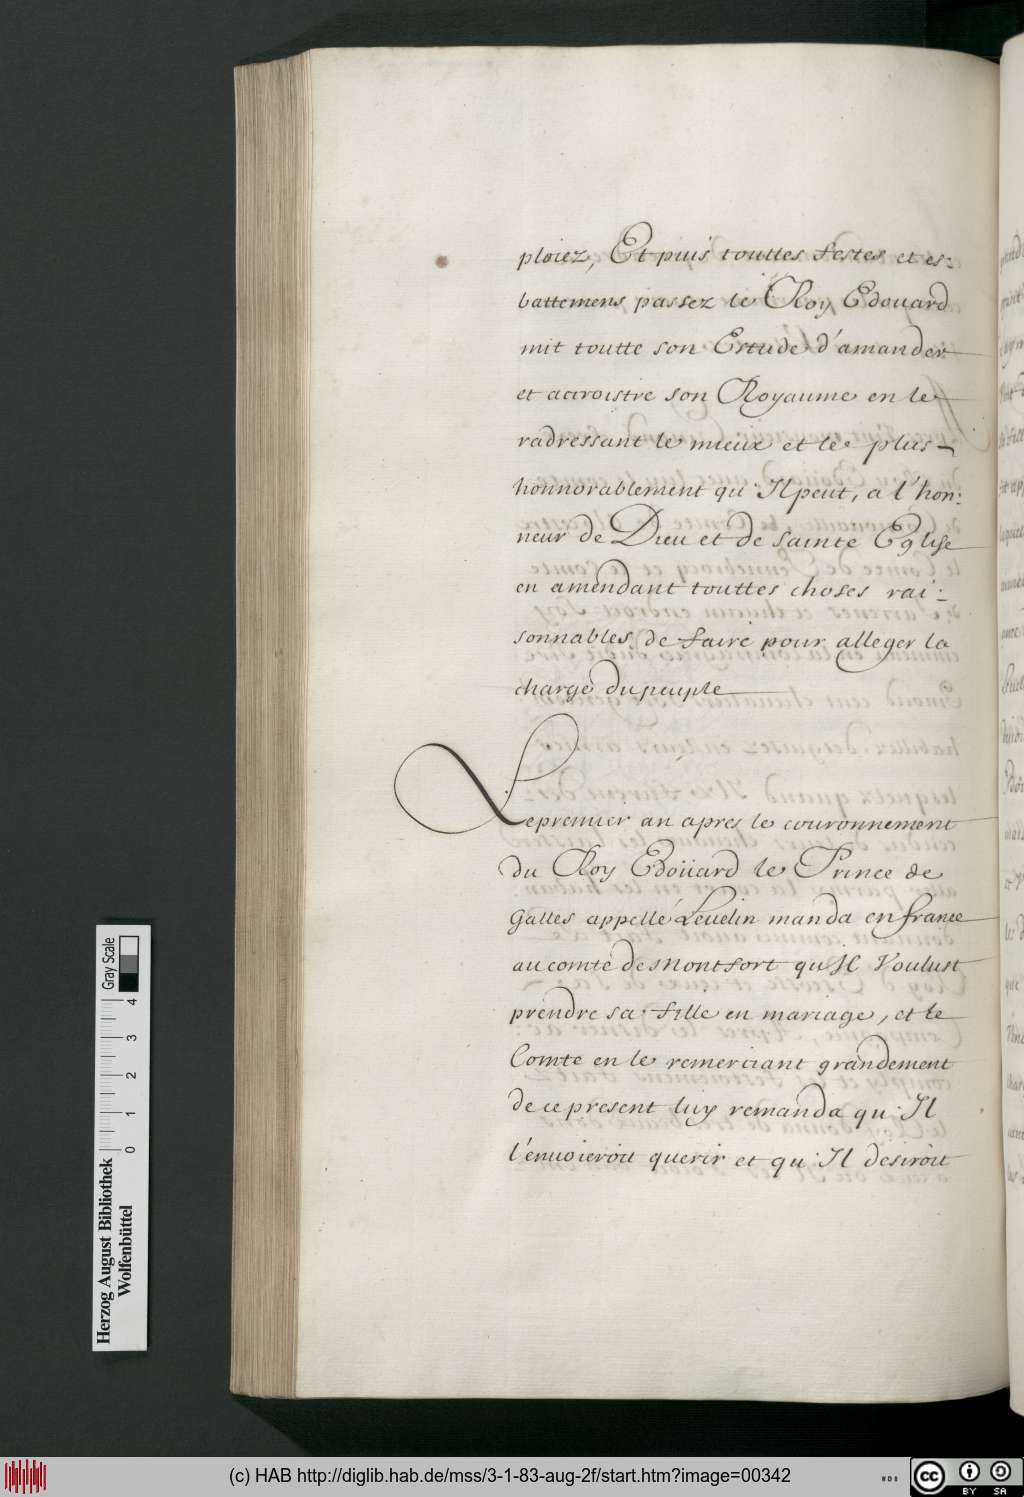 ploiez, Et puis touttes festes et es:
battemens passez le Roy Edouard
mit toutte son Estude d'amander
et accroistre son Royaume en le
radressant le mieux et le plus
honnorablement qu'Il peut, a l'hon:
neur de Dieu et de sainte Eglise
en amendant touttes choses rai:
sonnables de faire pour alleger la
charge du peuple
Le premier an apres le couronnement
du Roy Edoüard le Prince de
Galles appellé Leuelin manda en france
au comte de Montfort qu'Il Voulust
prendre sa fille en mariage, et le
Comte en le remerciant grandement
de ce present luy remanda qu'Il
l'enuoieroit querir et qu'Il desiroit
Herzog August Bibliothek
Wolfenbüttel
0 1 2 3 4 Gray Scale
(c) HAB http://diglib.hab.de/mss/3-1-83-aug-2f/start.htm?image=00342
WDB
cc BY SA